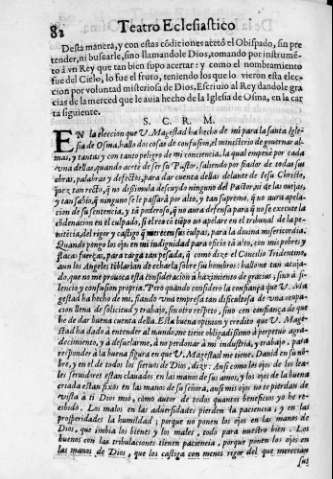 82 Teatro Eclesiastico
Desta manera, y con estas cõdiciones acetó el Obispado, sin pre
tender, ni buscarle, sino llamandole Dios, tomando por instrumẽ
to à vn Rey que tan bien supo acertar: y como el nombramiento
fue del Cielo, lo fue el fruto, teniendo los que lo vieron esta elec-
cion por voluntad misteriosa de Dios. Escriuio al Rey dandole gra
cias de la merced que le auia hecho de la Iglesia de Osma, en la car
ta siguiente.
S. C. R. M.
EN la eleccion que V. Magestad ha hecho de mi para la santa Igle-
sia de Osma, hallo dos cosas de confusion, el ministerio de gouernar al-
mas, y tantas, y con tanto peligro de mi conciencia, la qual empeñè por cada
vna dellas, quando aceté de ser su Pastor, saliendo por fiador de todas sus
obras, palabras, y defectos, para dar cuenta dellas delante de Iesu Christo,
juez tan recto, q̃ no dissimula descuydo ninguno del Pastor, ni de las ouejas,
y tan sabio, q̃ ninguno se le passará por alto, y tan supremo, q̃ no aura apela-
cion de su sentencia, y tã poderoso, q̃ no aura defensa para q̃ no se execute la
cõdenacion en el culpado, si el reo
del rigor y castigo q̃ merecen sus culpas, para la diuina misericordia.
Quando pongo los ojos en mi indignidad para oficio tã alto, con mis pobres y
flacas fuerças, para carga tan pesada, q̃ como dize el Concilio Tridentino,
aun los Angeles tẽblarian de echarla sobre sus hombros: hallome tan acuja-
do, que no me prouoca esta consideracion à hazimiento de gracias; sino à si-
lencio y confusion propia. Pero quando considero la confiança que V. Ma
gestad ha hecho de mi, fiando vna empresa tan dificultosa de vna ocupa-
cion llena de solicitud y trabajo, sin otro respeto, sino con confiança de que
he de dar buena cuenta della. Esta buena opinion y credito que V. Mage-
stad ha dado à entender al mundo, me tiene obligadissimo à perpetuo agra-
decimiento, y à desuelarme, à no perdonar à mi industria, y trabajo, para
responder à la buena figura en que V. Magestad me tiene. Dauid en su nõ-
bre, y en el de todos los sieruos de Dios, dize: Assi como los ojos de los lea-
les seruidores estan clauados en las manos de sus amos, y los ojos de la buena
criada estan fixos en las manos de su señora, assi mis ojos no te pierdan de
vista à ti Dios mio, como autor de todos quantos beneficios yo he re-
cibido. Los malos en las aduersidades pierden la paciencia; y en las
prosperidades la humildad; porque no ponen los ojos en las manos de
Dios, que embia los bienes y los males, todo para nuestro bien. Los
buenos con las tribulaciones tienen paciencia, porque ponen los ojos en
las manos de Dios, que los castiga con menos rigor del que merecian
sus